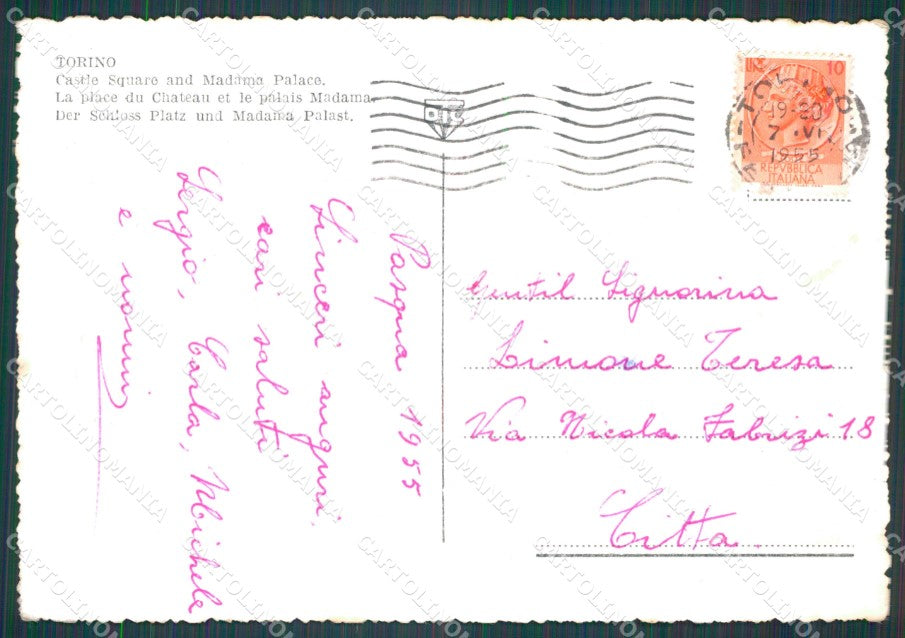 TORINO
Castle Square and Madama Palace.
La place du Chateau et le palais Madama.
Der Schloss Platz und Madama Palast.
LIRE 10
19-20
7 · VI
1955
REPVBBLICA
ITALIANA
Pasqua 1955
Sinceri auguri.
cari saluti
Sergio, Carla, Michele
e nonni
Gentil Signorina
Limone Teresa
Via Nicola Fabrizi 18
Citta
CARTOLINOMANIA